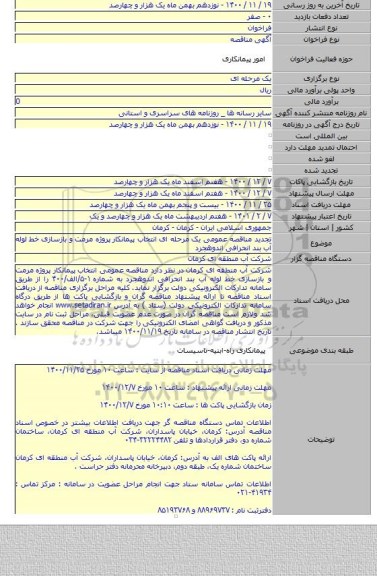 تاریخ آخرین به روز رسانی ۱۹ / ۱۱ / ۱۴۰۰ - نوزدهم بهمن ماه یک هزار و چهارصد
تعداد دفعات بازدید ۰ - صفر
نوع انتشار فراخوان
نوع فراخوان آگهی مناقصه
حوزه فعالیت فراخوان امور پیمانکاری
نوع برگزاری یک مرحله ای
واحد پولی برآورد مالی ریال
برآورد مالی 0
نام روزنامه منتشر کننده آگهی سایر رسانه ها _ روزنامه های سراسری و استانی
تاریخ درج آگهی در روزنامه ۱۹ / ۱۱ / ۱۴۰۰ - نوزدهم بهمن ماه یک هزار و چهارصد
بین المللی است
احتمال تمدید مهلت دارد
لغو شده
تجدید شده
تاریخ بازگشایی پاکات ۷ / ۱۲ / ۱۴۰۰ - هفتم اسفند ماه یک هزار و چهارصد
مهلت ارسال پیشنهاد ۷ / ۱۲ / ۱۴۰۰ - هفتم اسفند ماه یک هزار و چهارصد
مهلت دریافت اسناد ۲۵ / ۱۱ / ۱۴۰۰ - بیست و پنجم بهمن ماه یک هزار و چهارصد
تاریخ اعتبار پیشنهاد ۷ / ۲ / ۱۴۰۱ - هفتم اردیبهشت ماه یک هزار و چهارصد و یک
کشور | استان | شهر جمهوری اسلامی ایران - کرمان - کرمان
موضوع تجدید مناقصه عمومی یک مرحله ای انتخاب پیمانکار پروژه مرمت و بازسازی خط لوله
آب بند انحرافی اندوهجرد
دستگاه مناقصه گزار شرکت آب منطقه ای کرمان
محل دریافت اسناد شرکت آب منطقه ای کرمان در نظر دارد مناقصه عمومی انتخاب پیمانکار پروژه مرمت
و بازسازی خط لوله آب بند انحرافی اندوهجرد به شماره ۵-۱/الف/۴۰۰ را از طریق
سامانه تدارکات الکترونیکی دولت برگزار نماید. کلیه مراحل برگزاری مناقصه از دریافت
اسناد مناقصه تا ارائه پیشنهاد مناقصه گران و بازگشایی پاکت ها از طریق درگاه
سامانه تدارکات الکترونیکی دولت (ستاد) به آدرس www.setadiran.ir انجام خواهد
شد و لازم است مناقصه گران در صورت عدم عضویت قبلی، مراحل ثبت نام در سایت
مذکور و دریافت گواهی امضای الکترونیکی را جهت شرکت در مناقصه محقق سازند .
تاریخ انتشار مناقصه در سامانه تاریخ ۱۴۰۰/۱۱/۱۹ میباشد.
طبقه بندی موضوعی پیمانکاری راه-ابنیه-تاسیسات
توضیحات مهلت زمانی دریافت اسناد مناقصه از سایت : ساعت ۱۰ مورخ ۱۴۰۰/۱۱/۲۵
مهلت زمانی ارائه پیشنهاد : ساعت ۱۰ مورخ ۱۴۰۰/۱۲/۷
زمان بازگشایی پاکت ها : ساعت ۱۰:۱۰ مورخ ۱۴۰۰/۱۲/۷
اطلاعات تماس دستگاه مناقصه گر جهت دریافت اطلاعات بیشتر در خصوص اسناد
مناقصه آدرس: کرمان، خیابان پاسداران، شرکت آب منطقه ای کرمان، ساختمان
شماره دو، دفتر قراردادها و تلفن ۳۲۲۲۴۴۸۲-۰۳۴
ارائه پاکت های الف به آدرس: کرمان، خیابان پاسداران، شرکت آب منطقه ای کرمان
ساختمان شماره یک، طبقه دوم، دبیرخانه محرمانه دفتر حراست .
اطلاعات تماس سامانه ستاد جهت انجام مراحل عضویت در سامانه : مرکز تماس :
۰۲۱-۴۱۹۳۴
دفترثبت نام : ۸۸۹۶۹۷۳۷ و ۸۵۱۹۳۷۶۸